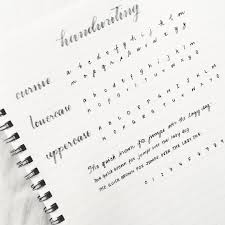 handwriting
cursive
a b c d e f g h i j k l m
n o p q r s t u v w x y z
lowercase
a b c d e f g h i j k l m
n o p q r s t u v w x y z
uppercase
A B C D E F G H I J K L M
N O P Q R S T U V W X Y Z
the quick brown fox jumps over the lazy dog.
the quick brown fox jumps over the lazy dog
THE QUICK BROWN FOX JUMPS OVER THE LAZY DOG
1 2 3 4 5 6 7 8 9